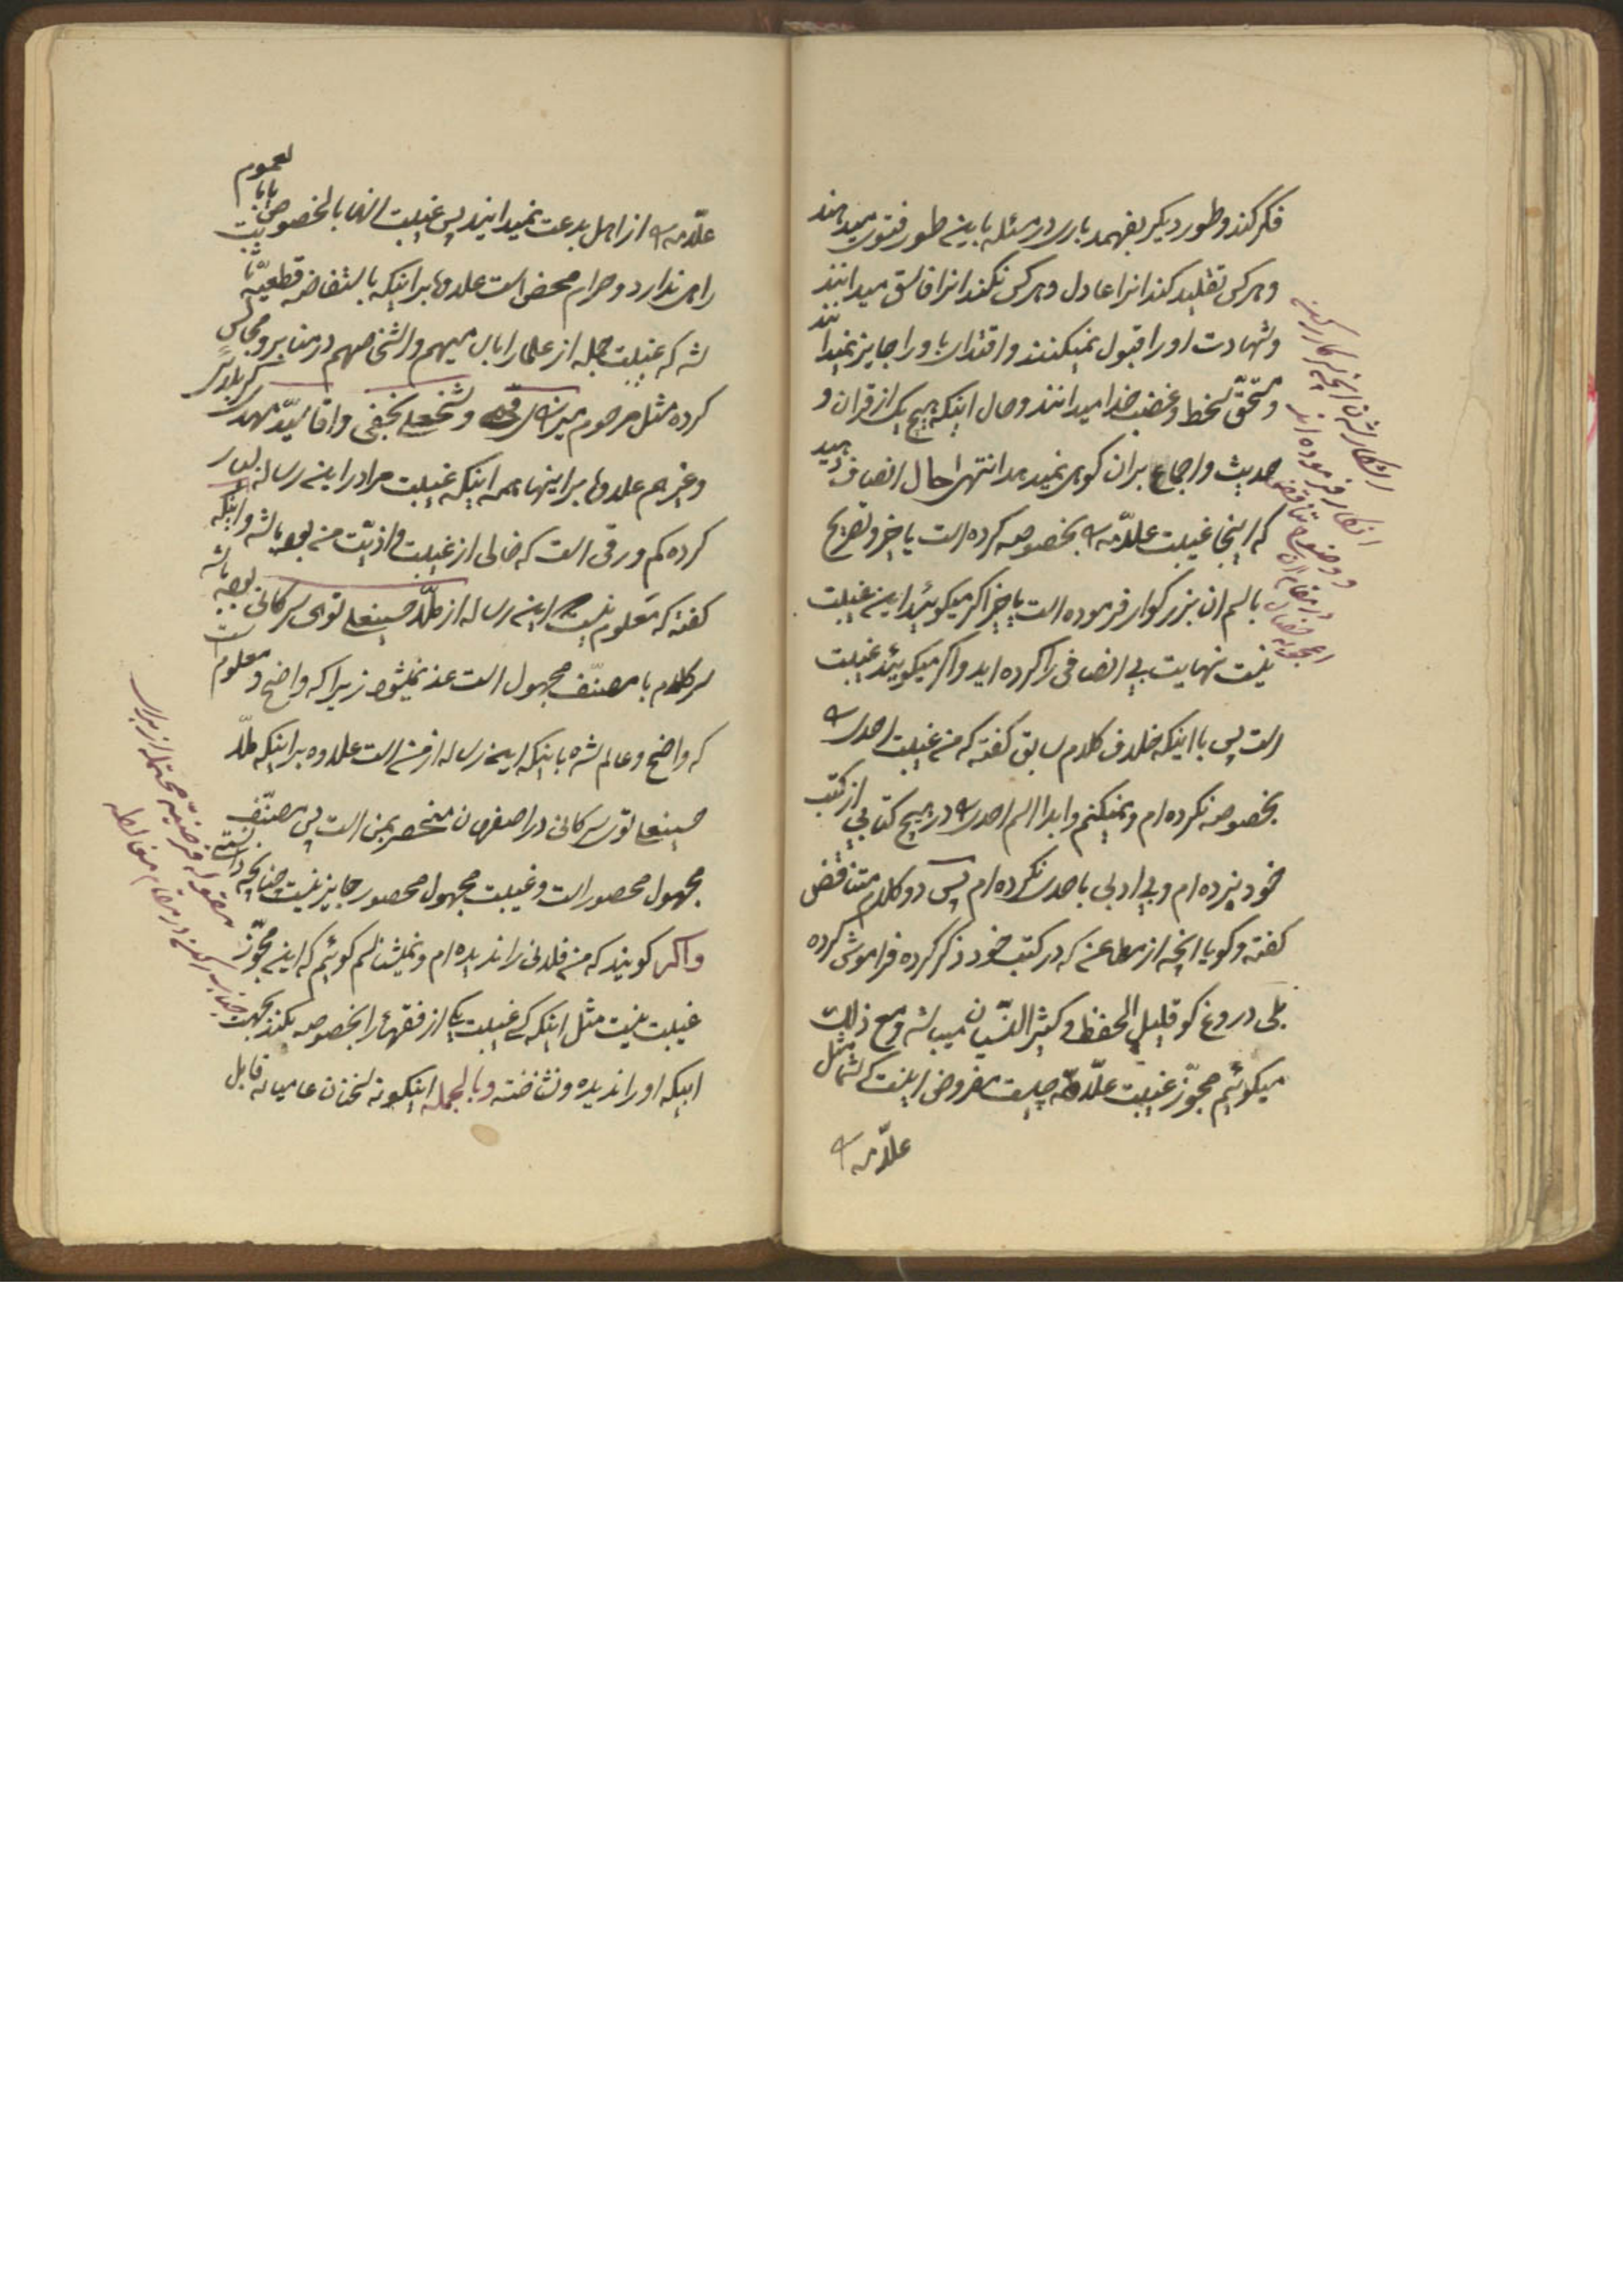 فکر کند و طور دیگر بفهمد باری در مسئله باینطور فتوی میدهند
و هر کس تقلید کند انرا عادل و هر کس نکند انرا فاسق میدانند
و شهادت او را قبول نمیکنند و اقتدای باو را جایز نمیدانند
و مستحق سخط و غضب خدا میدانند و حال اینکه هیچ یک از قران و
حدیث و اجماع بران کوهی نمیدهد انتهی حال انصاف دهید
که اینجا غیبت علامه بخصوصه کرده است یا خیر و تصریح
باسم ان بزرکوار فرموده است یا خیر اکر میکوئید این غیبت
نیست نهایت بی انصافی را کرده اید و اکر میکوئید غیبت
است پس با اینکه خلاف کلام سابق کفته که من غیبت احدی
بخصوصه نکرده ام و نمیکنم و ابدا اسم احدی در هیچ کتابی از کتب
خود نبرده ام و بی ادبی باحدی نکرده ام پس دو کلام متناقض
کفته و کویا انچه از مطاعن که در کتب خود ذکر کرده فراموش کرده
بلی دروغ کو قلیل الحفظ و کثیر النسیان میباشد و مع ذلک
میکوئیم مجوز غیبت علامه چیست مفروض اینست که شما مثل
علامه
علامه از اهل بدعت نمیدانید پس غیبت انها بالخصوص یا بالعموم
راهی ندارد و حرام محض است علاوه بر اینکه باستفاضه قطعیه ثابت
شد که غیبت جمله از علما را باسامیهم و اشخاصهم در منابر و مجالس
کرده مثل مرحوم میرزای قمی و شیخعلی نجفی و اقا سید مهدی کربلائی
و غیرهم علاوه بر اینها همه اینکه غیبت مرا در این رساله بسیار
کرده کم ورقی است که خالی از غیبت و اذیت من بوده باشد و اینکه
کفته که معلوم نیست این رساله از ملا حسینعلی توی سرکانی بوده باشد
سر کلام با مصنف مجهول است عذر نمیشود زیرا که واضح و معلوم است
که واضح و عالم شده باینکه این رساله از من است علاوه بر اینکه ملا
حسینعلی توی سرکانی در اصفهان منحصر بمن است پس مصنف
مجهول محصور است و غیبت مجهول محصور جایز نیست چنانچه دانستی
و اکر کویند که من فلانی را ندیده ام و نمیشناسم کوئیم که این مجوز
غیبت نیست مثل اینکه کسی غیبت یکی از فقها را بخصوصه بکند بجهت
اینکه او را ندیده و نشناخته و بالجمله اینکونه سخنان عامیانه قابل